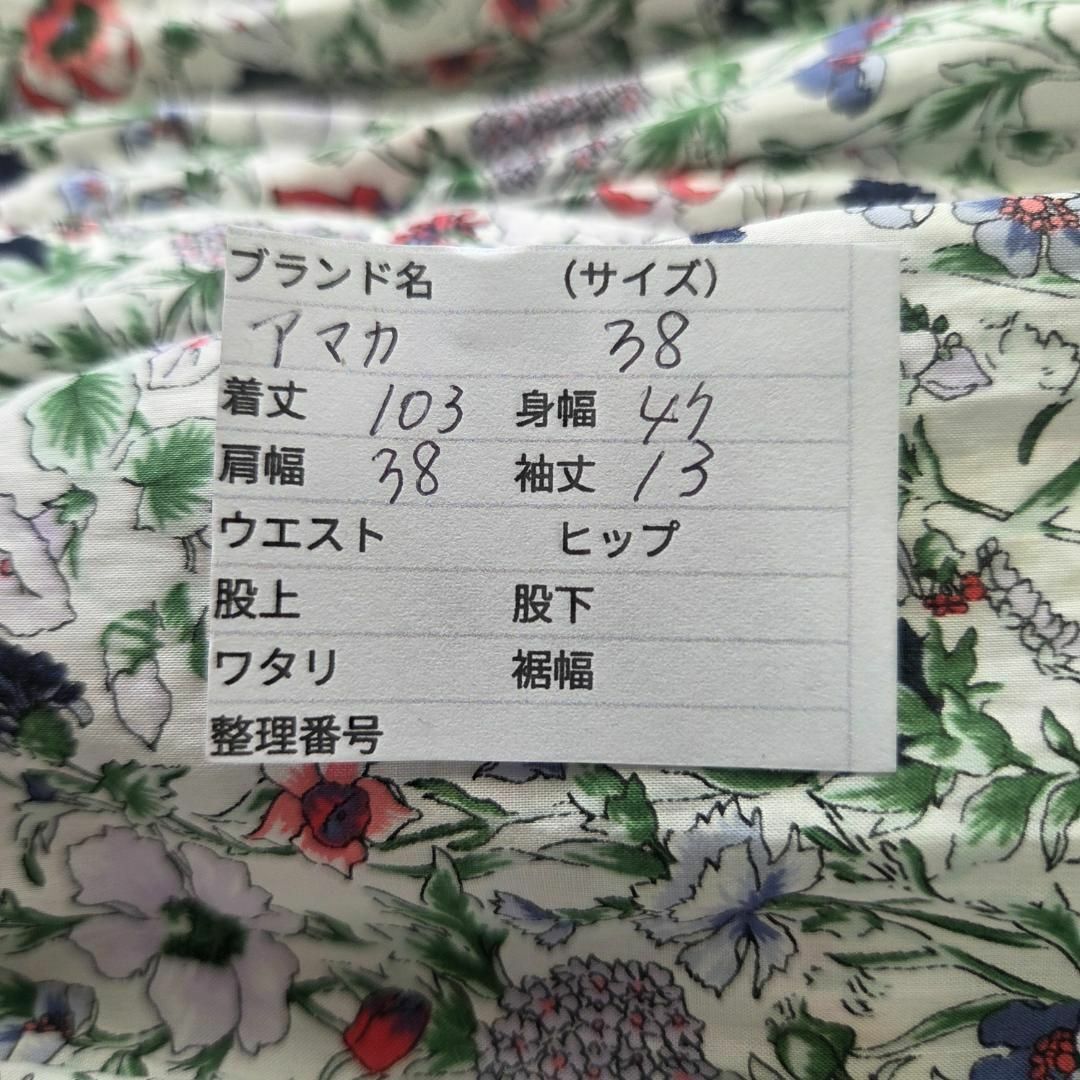 ブランド名 (サイズ)
アマカ 38
着丈 103 身幅 47
肩幅 38 袖丈 13
ウエスト ヒップ
股上 股下
ワタリ 裾幅
整理番号